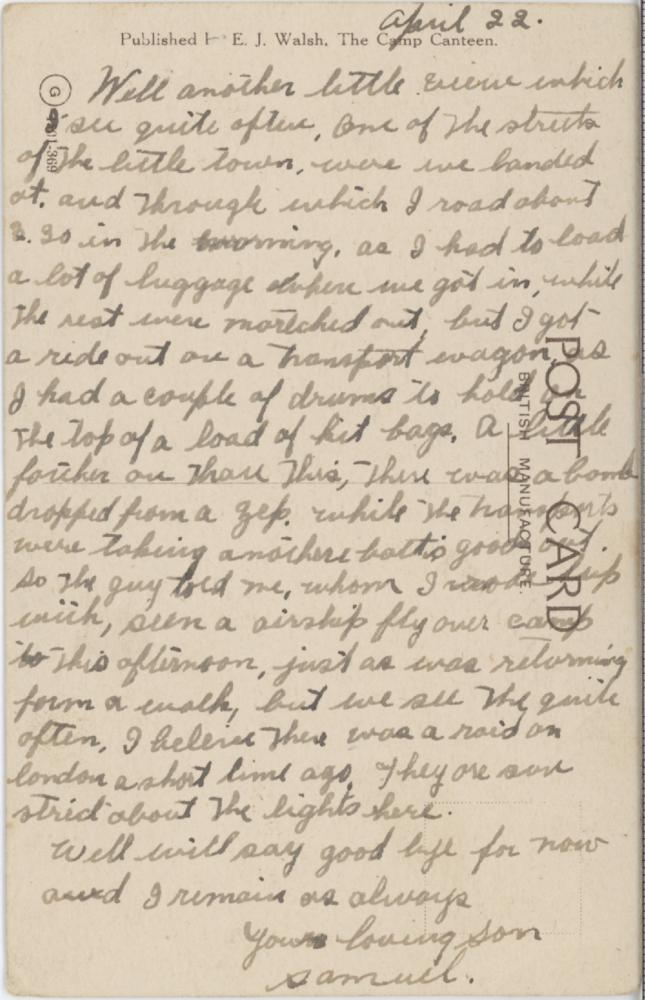 April 22.
Published E. J. Walsh, The Camp Canteen.
Well another little view which
I see quite often, One of the streets
of the little town, were we landed
at. and through which I road about
3.30 in the morning, as I had to load
a lot of luggage where we got in, while
the rest were mareched out, but I got
a ride out on a transport wagon, as
I had a couple of drums to hold on
the top of a load of kit bags. A little
forther on than this, there was a bomb
dropped from a zep. while the transports
were taking anothere batt's goods out.
so the guy told me, whom I rode up
with, seen a airship fly over camp
to this afternoon, just as was returning
form a walk, but we see the quite
often, I beleive there was a raid on
london a short time ago, They are son
strict about the lights here.
Well will say good bye for now
and I remain as always
Your loving son
Samuel.
POST CARD
BRITISH MANUFACTURE.
G